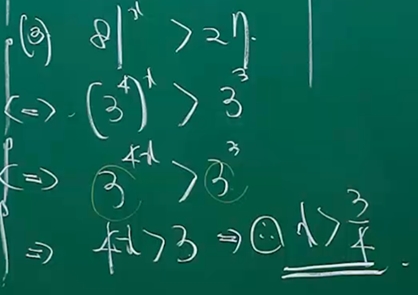 (3) 81^x > 27.
<=> (3^4)^x > 3^3
<=> 3^{4x} > 3^3
=> 4x > 3 => ∴ x > 3/4.